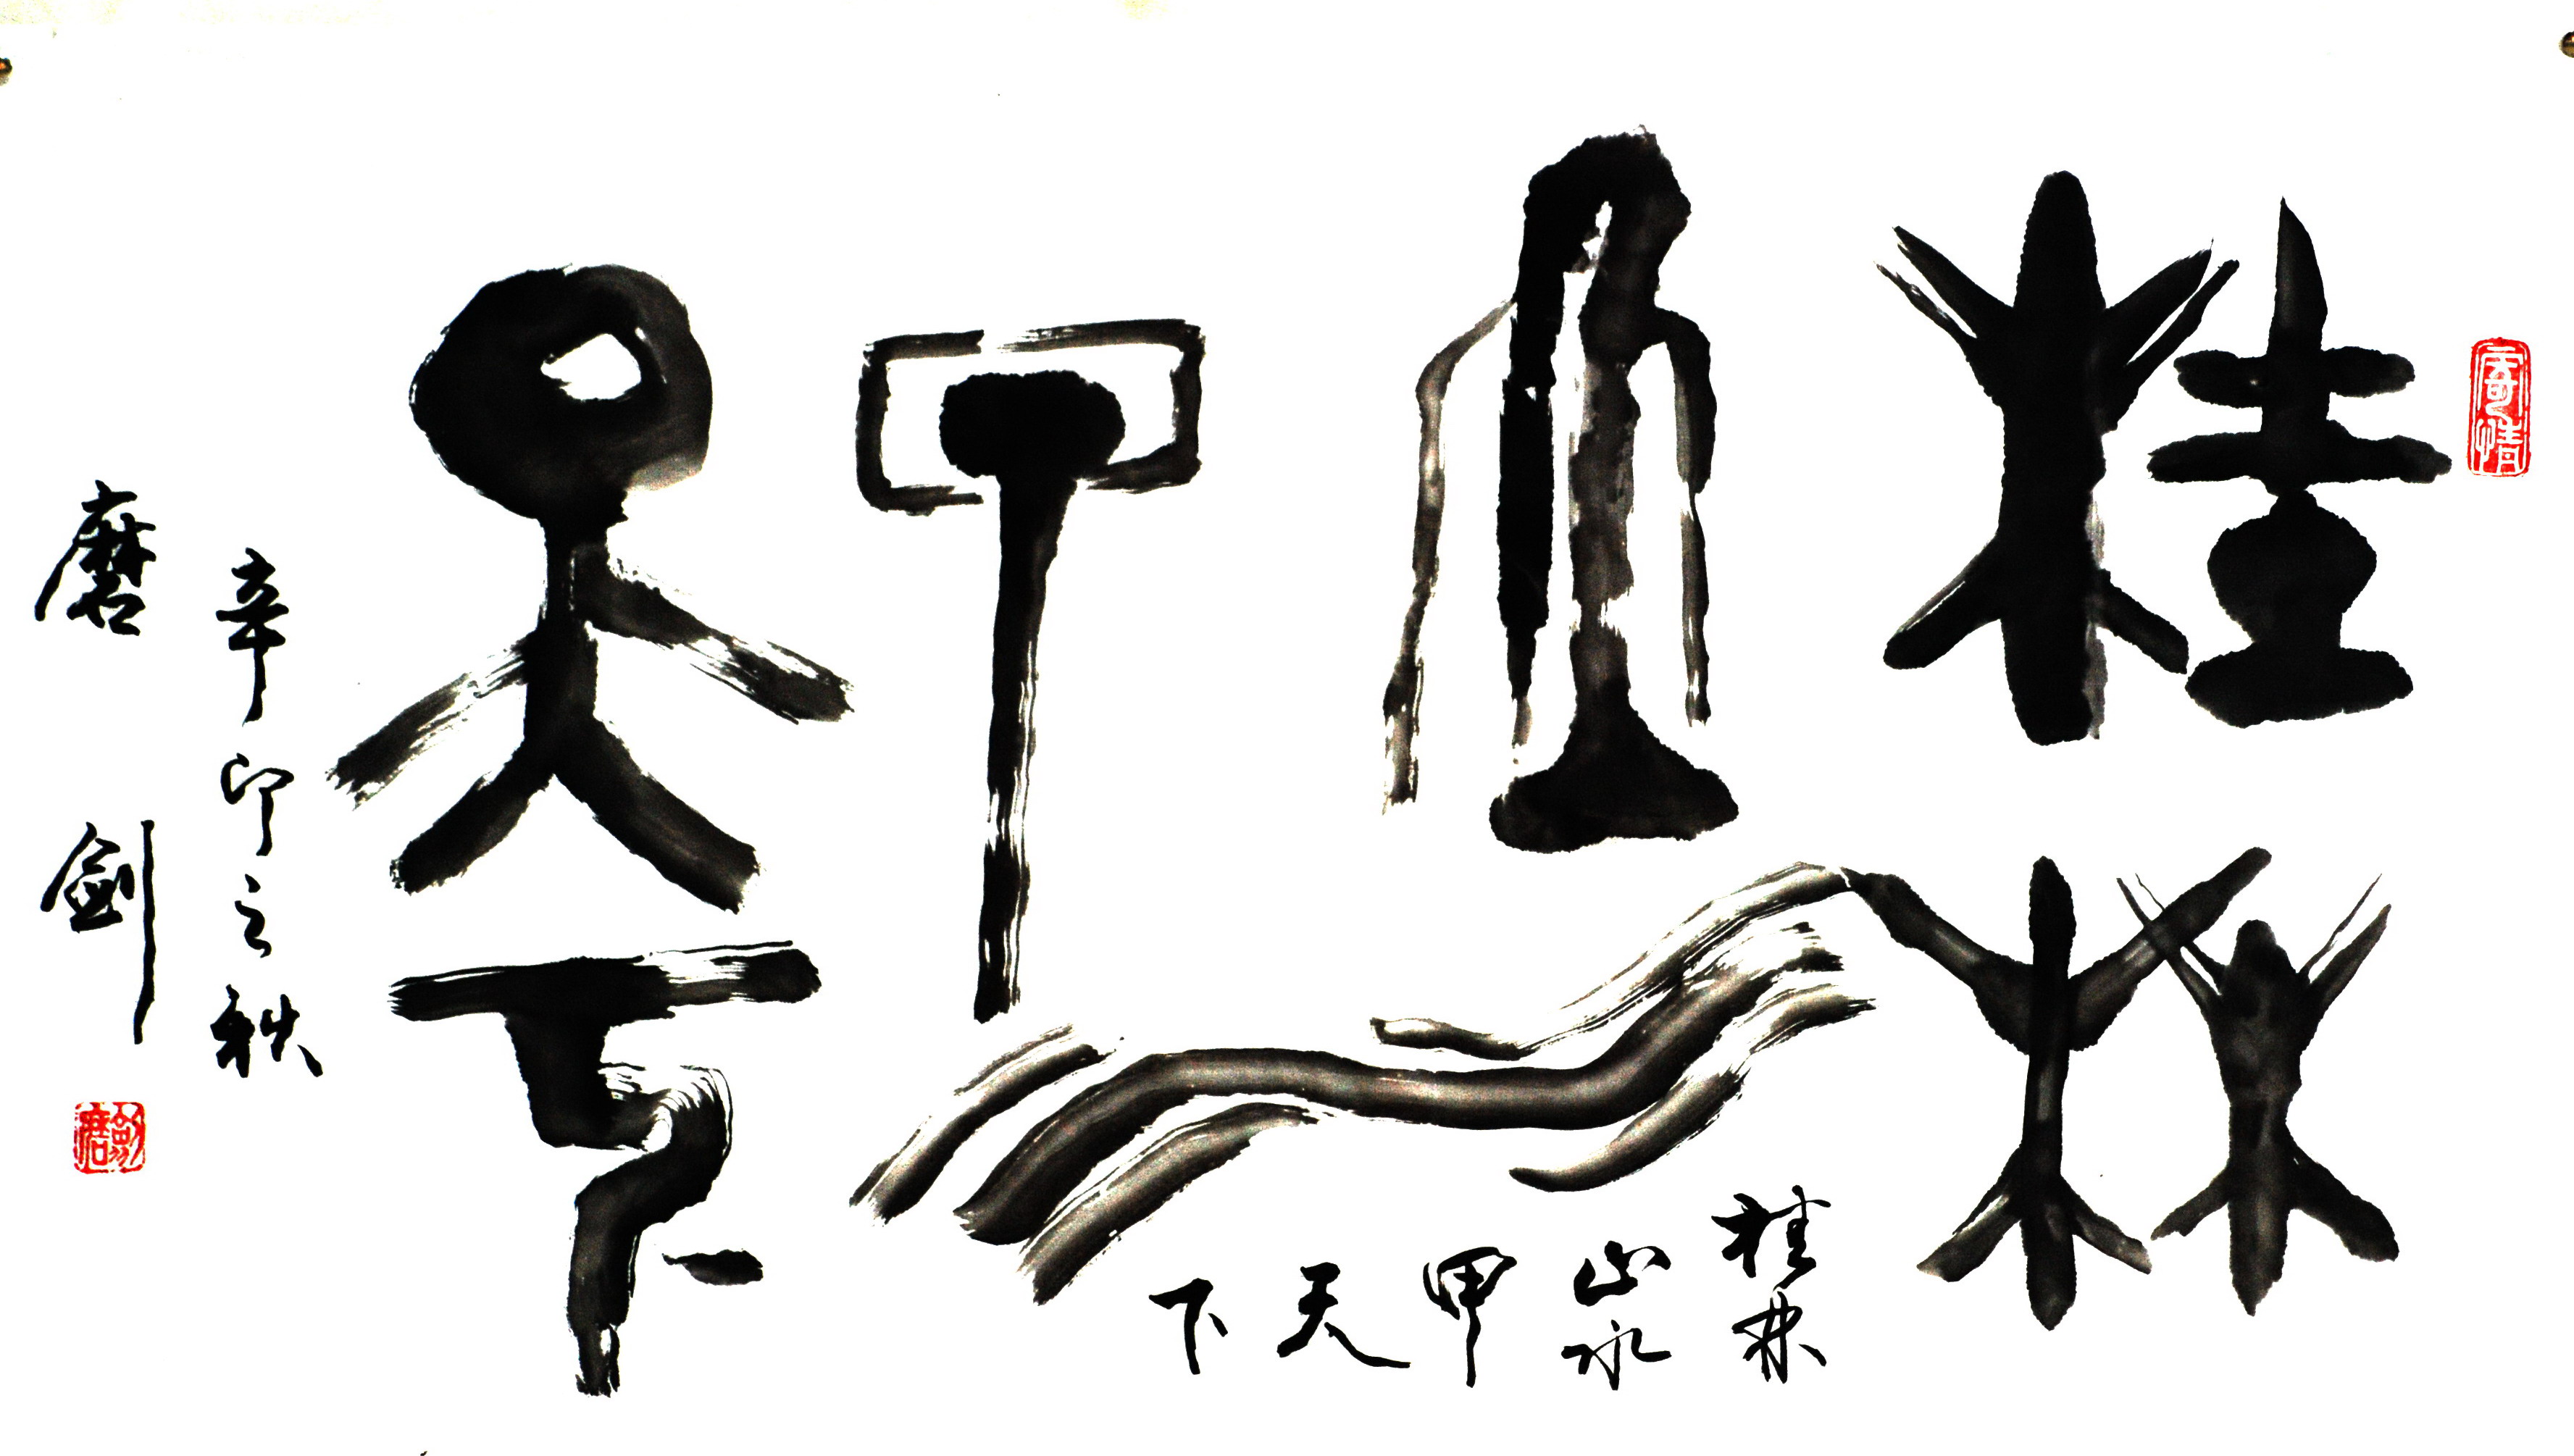 寄情
桂林
山水
甲
天下
桂林
山水
甲
天
下
辛卯之秋
磨剑
磨剑